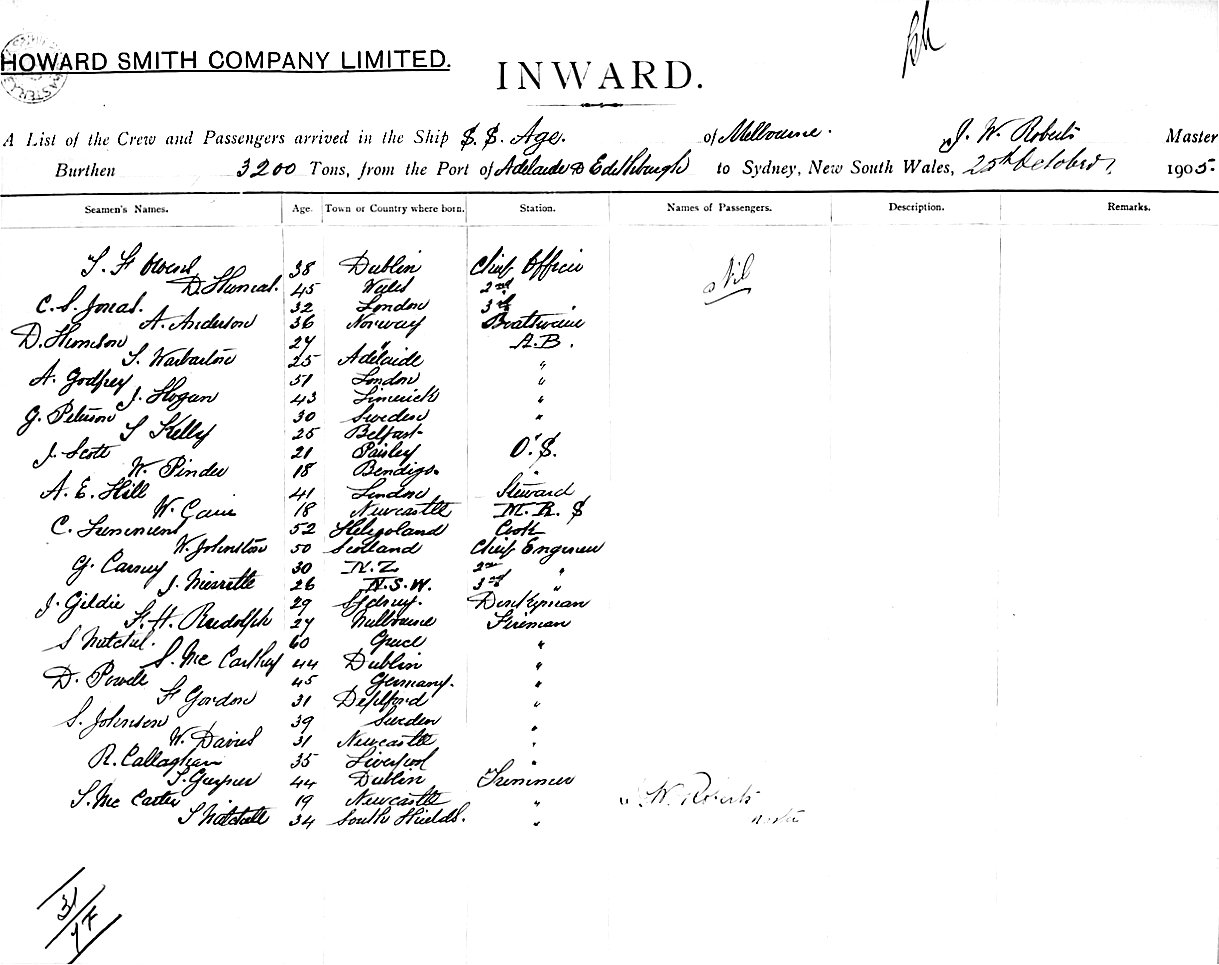 HOWARD SMITH COMPANY LIMITED.
INWARD.
A List of the Crew and Passengers arrived in the Ship S.S. Age. of Melbourne. J. W. Roberts Master
Burthen 3200 Tons, from the Port of Adelaide & Edithburgh to Sydney, New South Wales, 25th October, 1905.
Seamen's Names. Age. Town or Country where born. Station. Names of Passengers. Description. Remarks.
38 Dublin Chief Officer Nil
D. Thomas. 45 Wales 2nd
C. S. Jonas. 32 London 3rd
A. Anderson 36 Norway Boatswain
D. 27 " A.B.
Warbarton 25 Adelaide "
A. Godfrey 51 London "
J. Hogan 43 Limerick "
G. Peterson 30 Sweden "
Kelly 25 Belfast
J. Scott 21 Paisley O.S.
W. Pinder 18 Bendigo. "
A. E. Hill 41 London Steward
W. 18 Newcastle M.R.S
C. 52 Heligoland Cook
W. Johnston 50 Scotland Chief Engineer
G. Carney 30 N.Z 2nd "
J. 26 N.S.W. 3rd "
J. Gildie 29 Sydney. Donkyman
F. H. Rudolph 27 Melbourne Fireman
60 Greece "
S. McCarthy 44 Dublin "
D. Powell 45 Germany. "
F Gordon 31 Deptford "
S. Johnson 39 Sweden "
W. Davies 31 Newcastle "
R. Callaghan 35 Liverpool "
44 Dublin Trimmer
McCarter 19 Newcastle " J. W. Roberts
34 South Shields. " Master
31